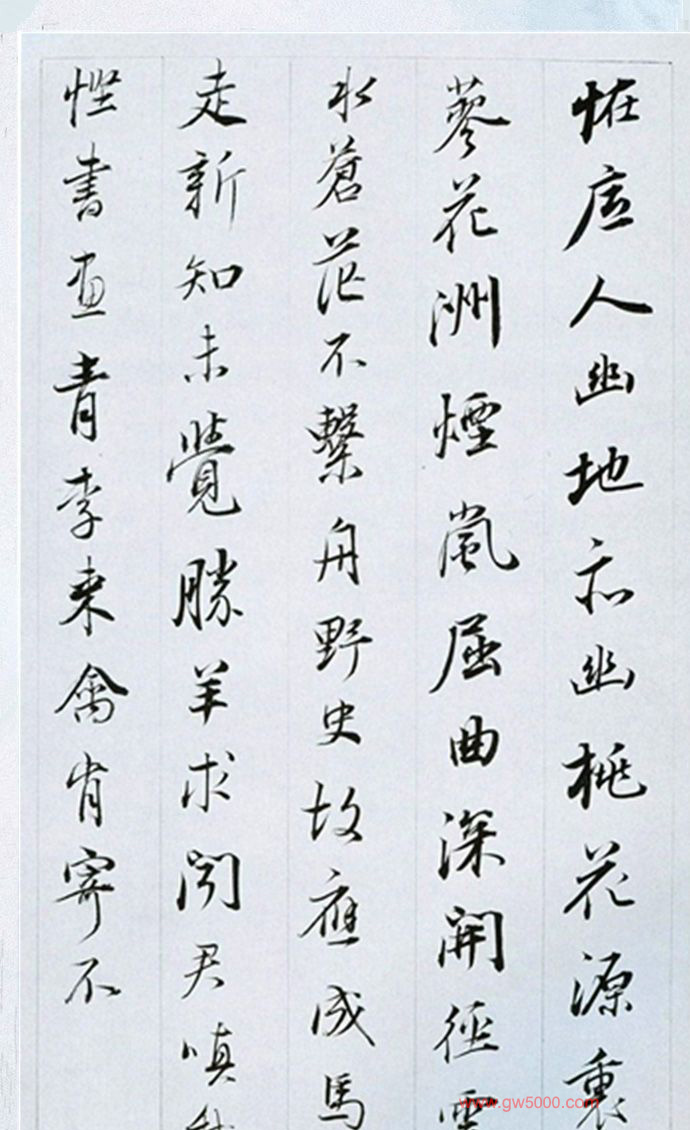 怪底人幽地亦幽桃花源裏
蓼花洲煙嵐屈曲深開徑雲
水蒼茫不繫舟野史故應成馬
走新知未覺勝羊求閑君嗔我
慳書畫青李来禽肯寄不
www.gw5000.com